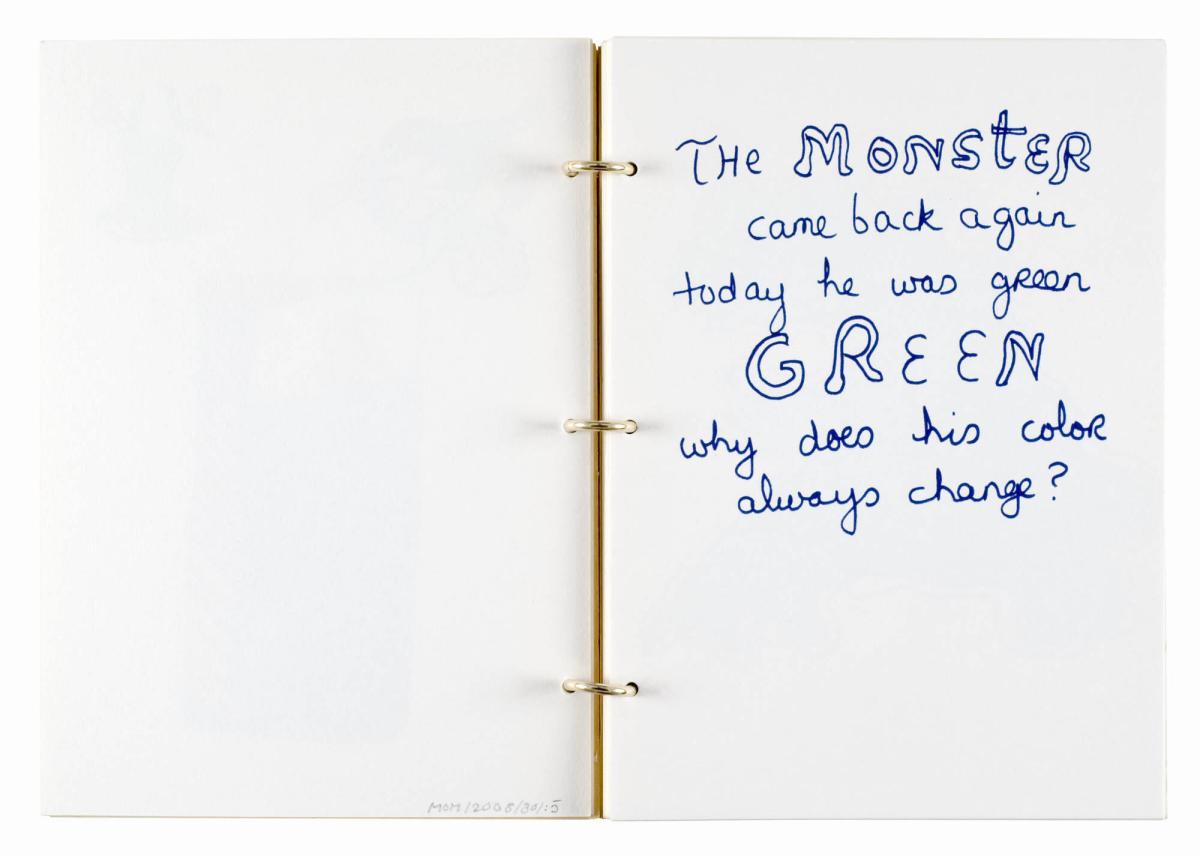 THe MONStER
came back again
today he was green
GREEN
why does his color
always change?
MOM/2006/30/:5